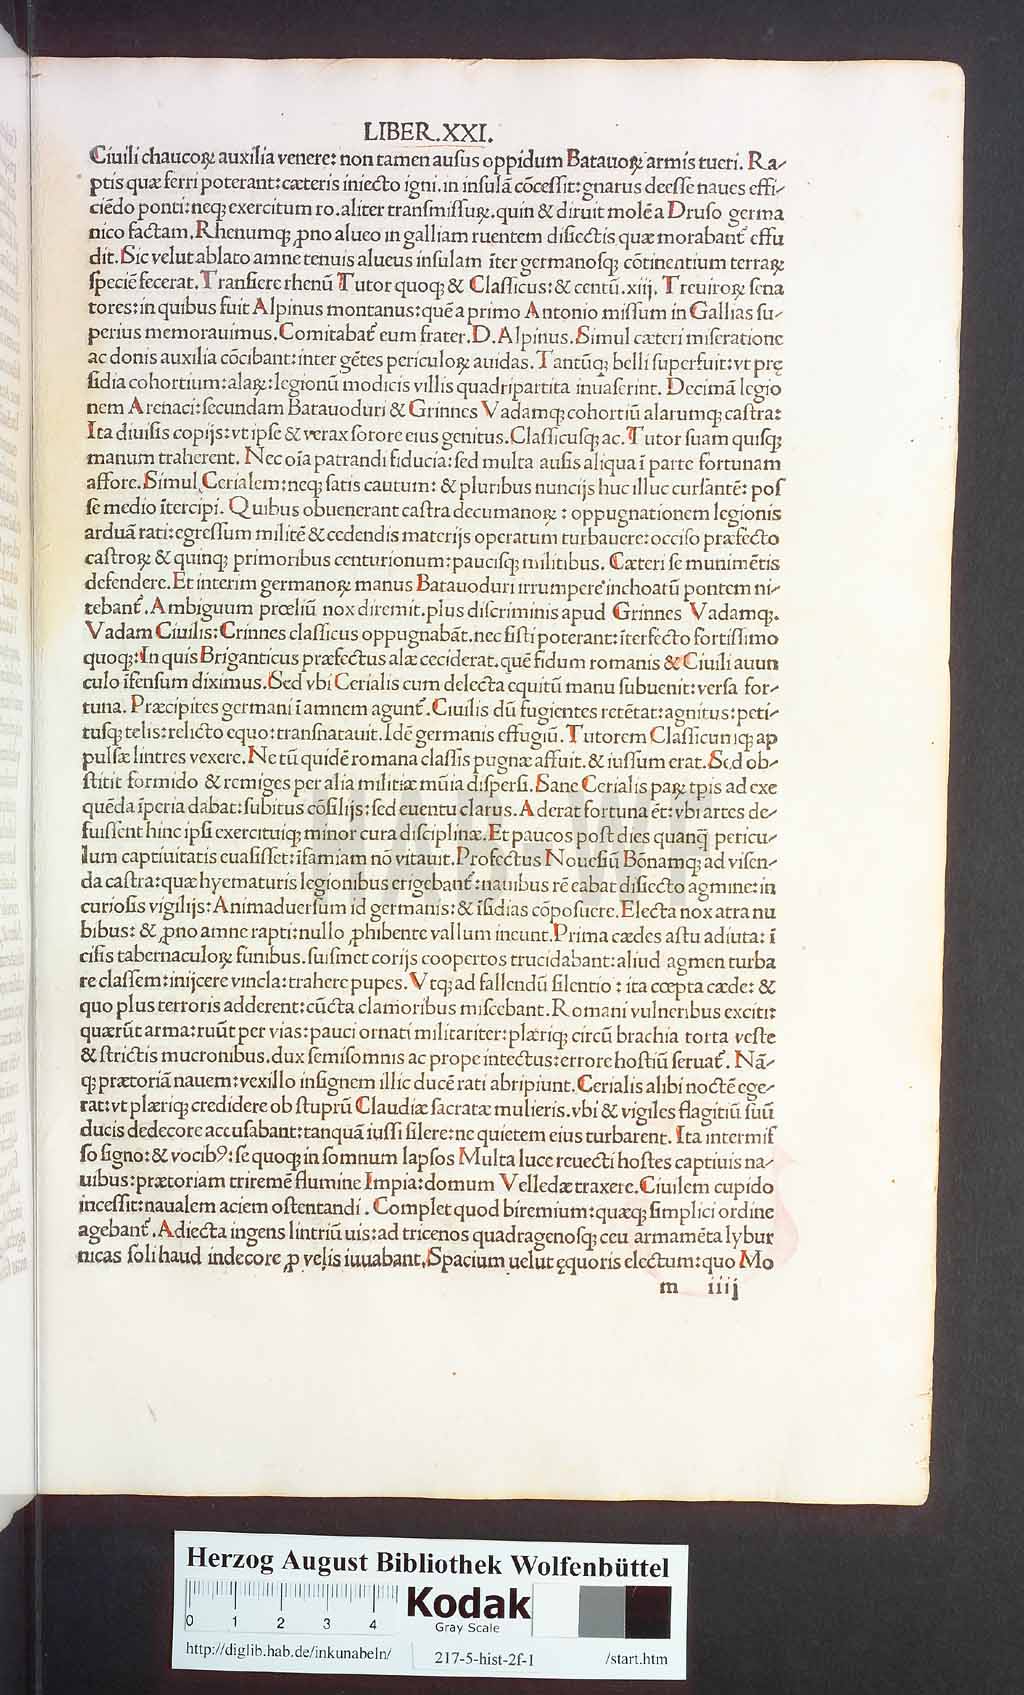 LIBER.XXI.
Ciuili chaucoꝝ auxilia venere: non tamen ausus oppidum Batauoꝝ armis tueri. Ra-
ptis quæ ferri poterant: cæteris iniecto igni. in insulā cōcessit: gnarus deesse naues effi-
ciēdo ponti: neqꝫ exercitum ro. aliter transmissuꝝ. quin & diruit molē a Druso germa
nico factam. Rhenumqꝫ ꝓno alueo in galliam ruentem disiectis quæ morabant᷑ effu
dit. Sic velut ablato amne tenuis alueus insulam īter germanosqꝫ cōtinentium terraꝝ
speciē fecerat. Transiere rhenū Tutor quoqꝫ & Classicus: & centū. xiij. Treuiroꝝ sena
tores: in quibus fuit Alpinus montanus: quē a primo Antonio missum in Gallias su-
perius memorauimus. Comitabat᷑ eum frater. D. Alpinus. Simul cæteri miseratione
ac donis auxilia cōcibant: inter gētes periculoꝝ auidas. Tantūqꝫ belli superfuit: vt prę
sidia cohortium: alaꝝ: legionū modicis villis quadripartita inuaserint. Decimā legio
nem Arenaci: secundam Batauoduri & Grinnes Vadamqꝫ cohortiū alarumqꝫ castra:
Ita diuisis copijs: vt ipse & verax sorore eius genitus. Classicusqꝫ ac. Tutor suam quisqꝫ
manum traherent. Nec oīa patrandi fiducia: sed multa ausis aliqua ī parte fortunam
affore. Simul Cerialem: neqꝫ satis cautum: & pluribus nuncijs huc illuc cursantē: pos
se medio ītercipi. Quibus obuenerant castra decumanoꝝ: oppugnationem legionis
arduā rati: egressum militē & cedendis materijs operatum turbauere: occiso præfecto
castroꝝ & quinqꝫ primoribus centurionum: paucisqꝫ militibus. Cæteri se munimētis
defendere. Et interim germanoꝝ manus Batauoduri irrumpere inchoatū pontem ni-
tebant᷑. Ambiguum prœliū nox diremit. plus discriminis apud Grinnes Vadamqꝫ.
Vadam Ciuilis: Crinnes classicus oppugnabāt. nec sisti poterant: īterfecto fortissimo
quoqꝫ: In quis Briganticus præfectus alæ ceciderat. quē fidum romanis & Ciuili auun
culo īfensum diximus. Sed vbi Cerialis cum delecta equitū manu subuenit: versa for-
tuna. Præcipites germani ī amnem agunt᷑. Ciuilis dū fugientes retētat: agnitus: peti-
tusqꝫ telis: relicto equo: transnatauit. Idē germanis effugiū. Tutorem Classicumqꝫ ap
pulsæ lintres vexere. Ne tū quidē romana classis pugnæ affuit. & iussum erat. Sed ob-
stitit formido & remiges per alia militiæ mūia dispersi. Sane Cerialis paꝝ tpis ad exe
quēda īperia dabat: subitus cōsilijs: sed euentu clarus. Aderat fortuna ēt: vbi artes de-
fuissent hinc ipsi exercituiqꝫ minor cura disciplinæ. Et paucos post dies quanq̄ pericu-
lum captiuitatis euasisset: īfamiam nō vitauit. Profectus Nouesiū Bōnamqꝫ ad visen-
da castra: quæ hyematuris legionibus erigebant᷑: nauibus rēeabat disiecto agmine: in
curiosis vigilijs: Animaduersum id germanis: & īsidias cōposuere. Electa nox atra nu
bibus: & ꝓno amne rapti: nullo ꝓhibente vallum ineunt. Prima cædes astu adiuta: ī
cisis tabernaculoꝝ funibus. suismet corijs coopertos trucidabant: aliud agmen turba
re classem: inijcere vincla: trahere pupes. Vtqꝫ ad fallendū silentio: ita cœpta cæde: &
quo plus terroris adderent: cūcta clamoribus miscebant. Romani vulneribus exciti:
quærūt arma: ruūt per vias: pauci ornati militariter: plæriqꝫ circū brachia torta veste
& strictis mucronibus. dux semisomnis ac prope intectus: errore hostiū seruat᷑. Nā-
qꝫ prætoriā nauem: vexillo insignem illic ducē rati abripiunt. Cerialis alibi noctē ege-
rat: vt plæriqꝫ credidere ob stuprū Claudiæ sacratæ mulieris. vbi & vigiles flagitiū suū
ducis dedecore accusabant: tanquā iussi silere: ne quietem eius turbarent. Ita intermis
so signo: & vocibꝰ: se quoqꝫ in somnum lapsos Multa luce reuecti hostes captiuis na-
uibus: prætoriam triremē flumine Impia: domum Velledæ traxere. Ciuilem cupido
incessit: naualem aciem ostentandi. Complet quod biremium: quæqꝫ simplici ordine
agebant᷑. Adiecta ingens lintriū uis: ad tricenos quadragenosqꝫ ceu armamēta lybur
nicas soli haud indecore ꝓ velis iuuabant. Spacium uelut ęquoris electum: quo Mo
m iiij
HAB-WF
Herzog August Bibliothek Wolfenbüttel
0 1 2 3 4
Kodak
Gray Scale
http://diglib.hab.de/inkunabeln/ 217-5-hist-2f-1 /start.htm